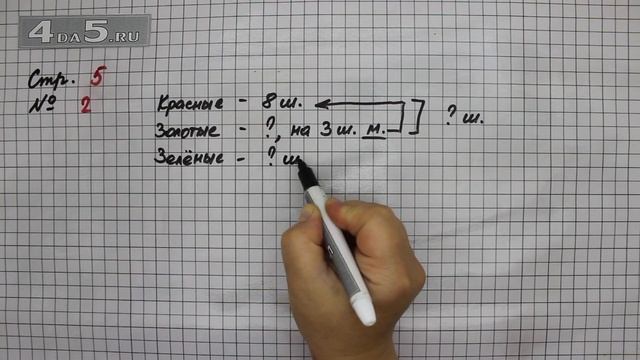 4DA5.RU
Стр. 5
№ 2
Красные - 8 ш.
Золотые - ?, на 3 ш. м. ? ш.
Зелёные - ? ш